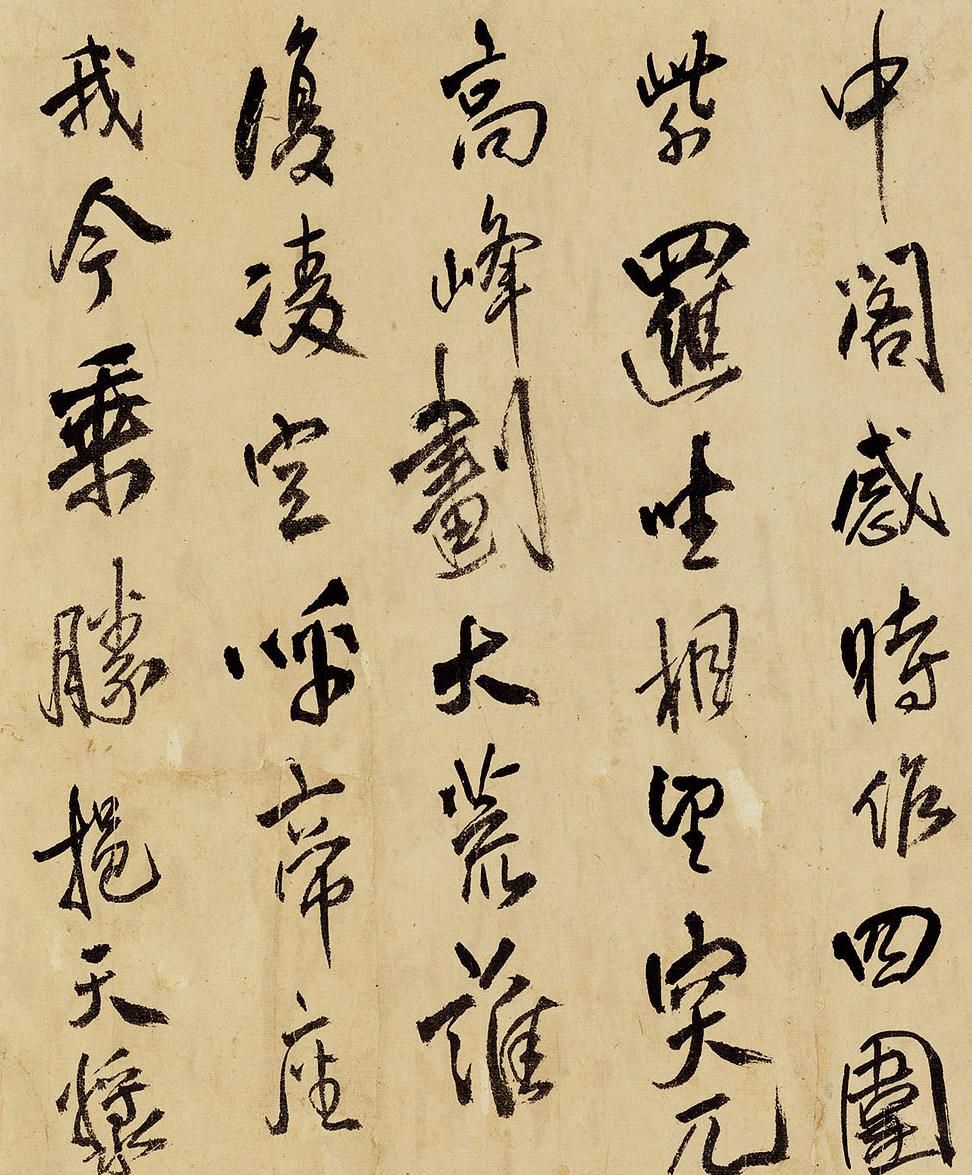 中閣感時作四圍
紫邏坐相望突兀
高峰劃大荒誰
復凌空呼帝座
我今乘勝挹天漿